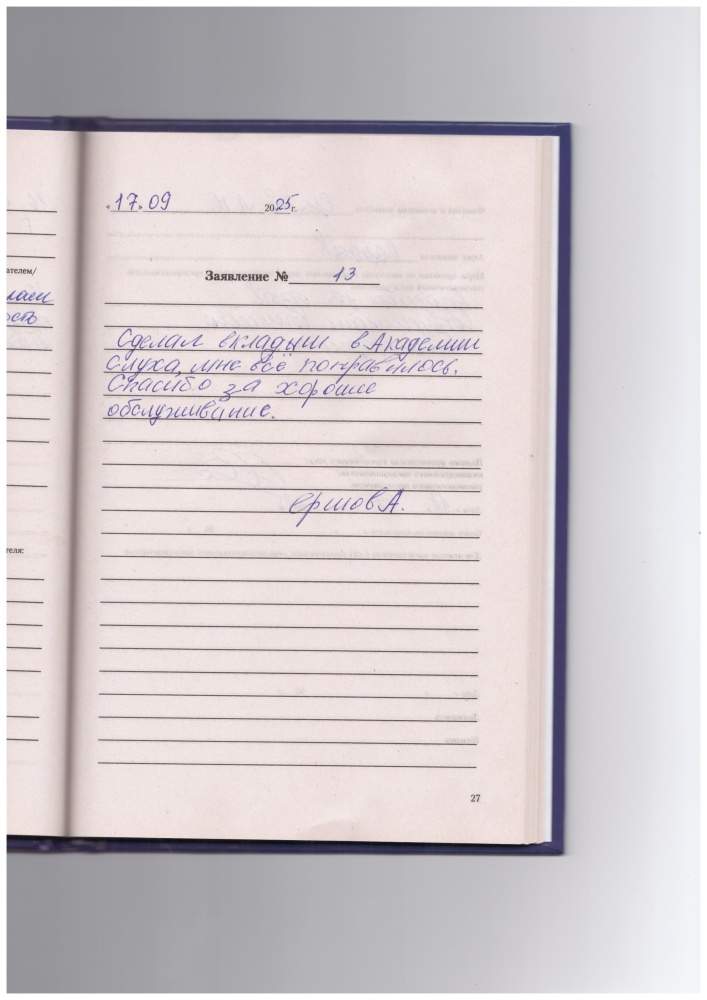 ателем/
теля:
«17» 09 2025 г.
Заявление № 13
Сделал вкладыш в Академии
Слуха, мне всё понравилось.
Спасибо за хорошее
обслуживание.
ершов А.
27